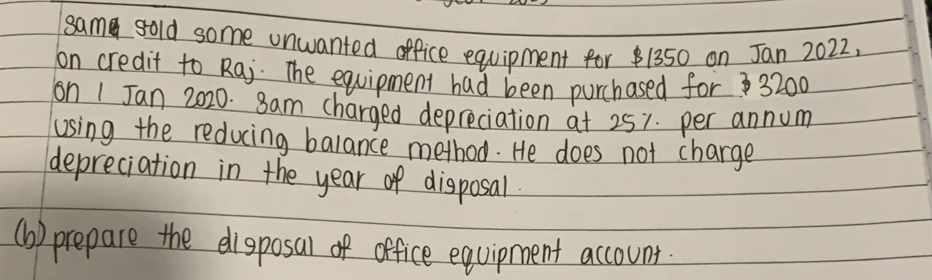 Sam sold some unwanted office equipment for $1350 on Jan 2022,
on credit to Raj. The equipment had been purchased for $3200
on 1 Jan 2020. Sam charged depreciation at 25% per annum
using the reducing balance method. He does not charge
depreciation in the year of disposal.
(b) prepare the disposal of office equipment account.